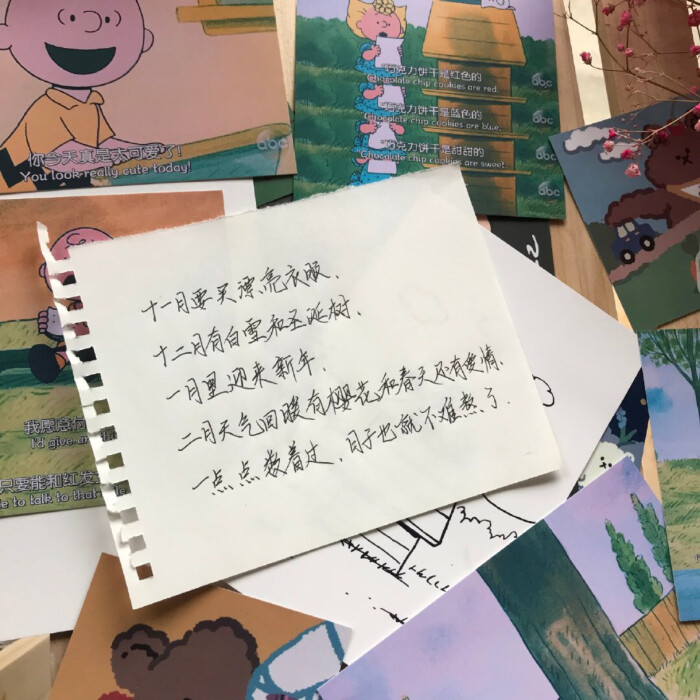 你今天真是太可爱了!
You look really cute today!
abc
巧克力饼干是红色的
Chocolate chip cookies are red.
abc
巧克力饼干是蓝色的
Chocolate chip cookies are blue.
abc
巧克力饼干是甜甜的
Chocolate chip cookies are sweet.
abc
十一月要买漂亮衣服、
十二月有白雪和圣诞树、
一月里迎来新年.
二月天气回暖有樱花和春天还有爱情.
一点点数着过、日子也就不难熬了.
我愿意
I'd give
只要能和红发
to talk to that